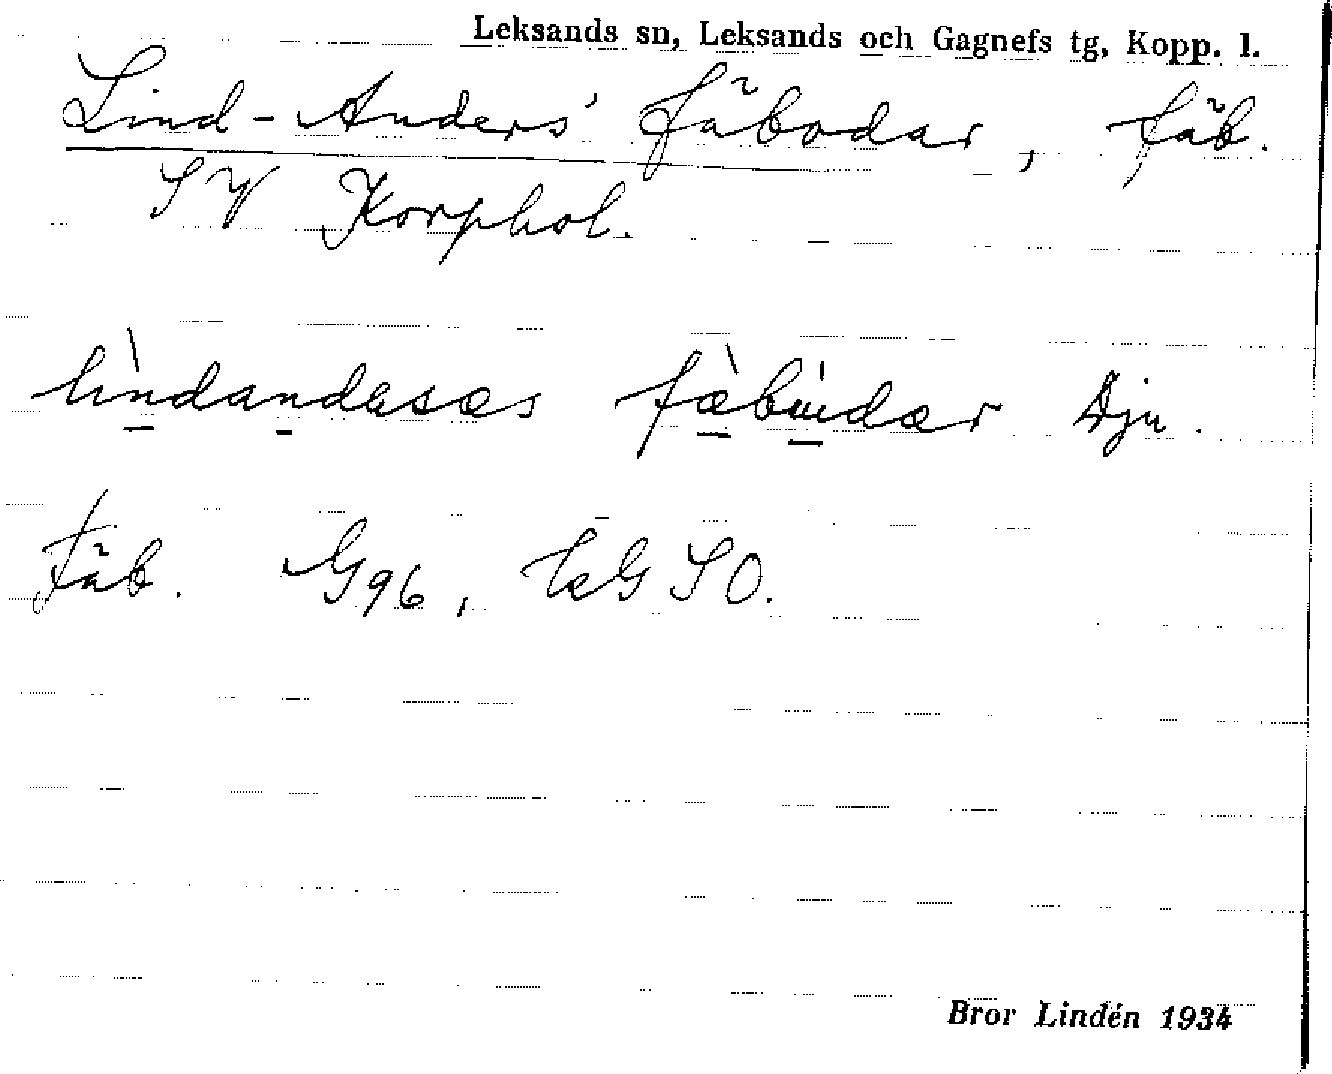 Leksands sn, Leksands och Gagnefs tg, Kopp. l.
Lind-Anders' fäbodar, fäb.
SV Korphol.
lìndandasæs fæ̀bùdær Dju.
Fäb. G96, SO.
Bror Lindén 1934